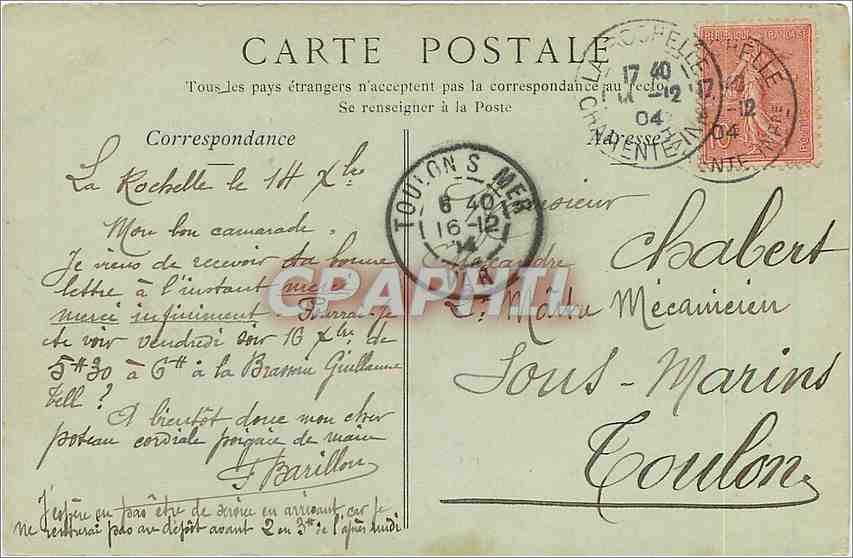 CARTE POSTALE
Tous les pays étrangers n'acceptent pas la correspondance au recto
Se renseigner à la Poste
Correspondance
Adresse
La Rochelle le 14 Xbre
Mon bon camarade.
Je viens de recevoir ta bonne
lettre à l'instant merci
merci infiniment. Pourrai-je
te voir vendredi soir 16 Xbre de
5H30 à 6H à la Brasserie Guillaume
Tell?
A bientôt donc mon cher
poteau cordiale poignée de main
F Barillon
J'espère ne pas être de service en arrivant car je
ne rentrerai pas au dépôt avant 2 ou 3H de l'après midi
Monsieur
Chabert
Alexandre
2e Maître Mécanicien
Sous-Marins
Toulon
LA ROCHELLE
17 40
-12
04
CHARENTE INFRE
TOULON S MER
6 40
16-12
VAR
REPUBLIQUE FRANÇAISE
POSTES
10
CPAPHIL